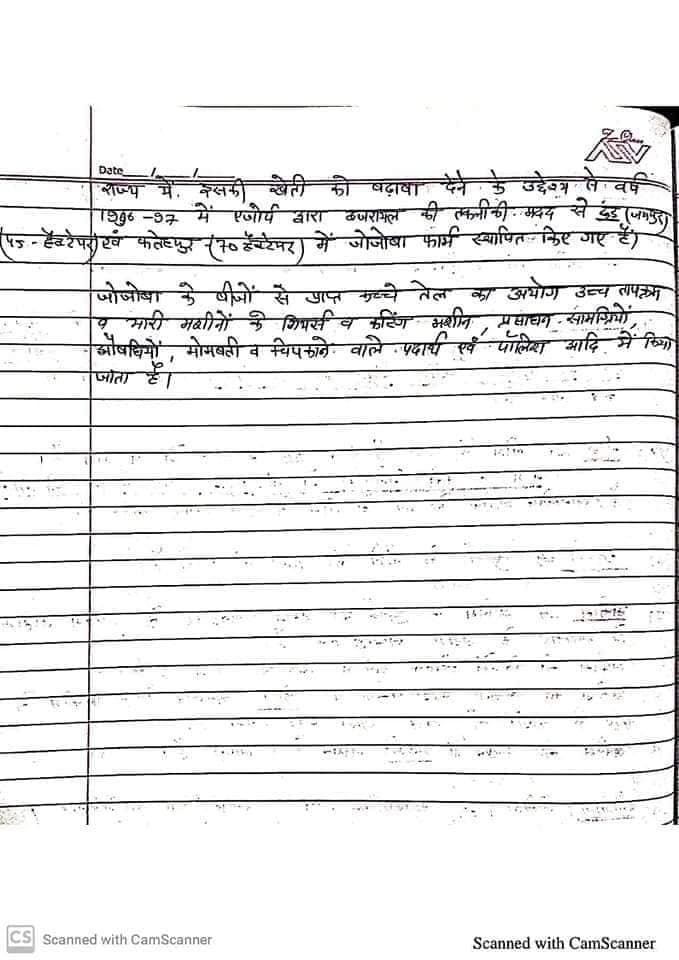 Date / /
राज्य में इसकी खेती को बढ़ावा देने के उद्देश्य से वर्ष
1996-97 में एजोर्प द्वारा इजरायल की तकनीकी मदद से ढंड (जयपुर)
(45 - हैक्टेयर) एवं फतेहपुर - (70 हैक्टेयर) में जोजोबा फार्म स्थापित किए गए हैं)
जोजोबा के बीजों से प्राप्त कच्चे तेल का उपयोग उच्च तापक्रम
व भारी मशीनों के गियर्स व कटिंग मशीन, प्रसाधन सामग्रियों,
औषधियों, मोमबती व चिपकाने वाले पदार्थ एवं पॉलिश आदि में किया
जाता है।
CS Scanned with CamScanner
Scanned with CamScanner